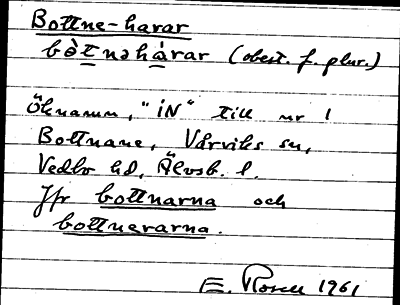 Bottne-harar
bòt̲nəhà̲rar (obest. f. plur.)
Öknamn, "iN" till nr 1
Bottnane, Vårviks sn,
Vedbo hd, Älvsb. l.
Jfr bottnarna och
bottnerarna.
E. Rosell 1961